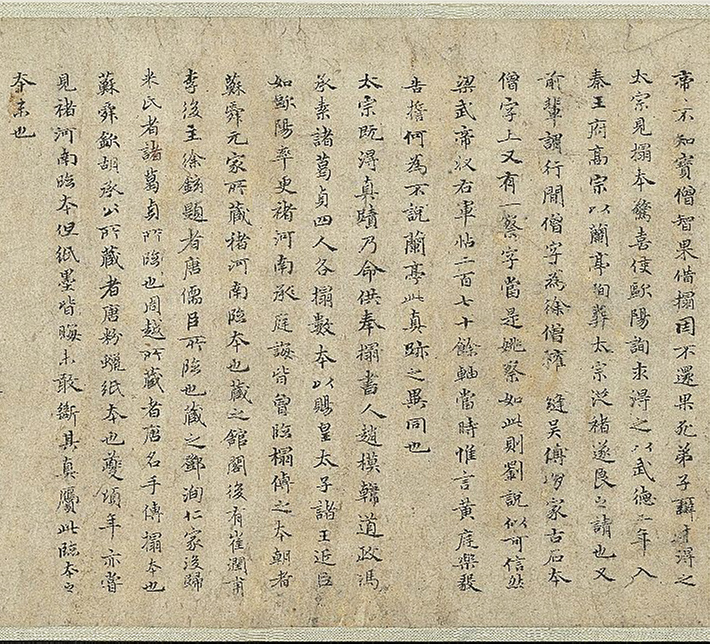 帝不知寶僧智果借搨因不還果死弟子辯才淂之
太宗見搨本驚喜使歐陽詢求得之以武德二年入
秦王府高宗以蘭亭殉葬太宗從褚遂良之請也又
前輩謂行間僧字為徐僧權縫吴傅朋家古石本
僧字上又有一察字當是姚察如此則劉說似可信然
梁武帝收右軍帖二百七十餘軸當時惟言黃庭樂毅
告誓何為不說蘭亭此真跡之異同也
太宗既淂真蹟乃命供奉搨書人趙模韓道政馮
承素諸葛貞四人各搨數本以賜皇太子諸王近臣
如歐陽率更褚河南永庭誨皆曾臨搨傅之本朝者
蘇舜元家所藏褚河南臨本也藏之館閣後有崔潤甫
李後主徐鉉題者唐儒臣所臨也藏之鄧洵仁家後歸
米氏者諸葛貞所臨也周越所藏者唐名手傅搨本也
蘇舜欽胡承公所藏者唐粉蠟紙本也夔頃年亦嘗
見褚河南臨本但紙墨皆晦未敢斷其真贗此臨本之
夲末也